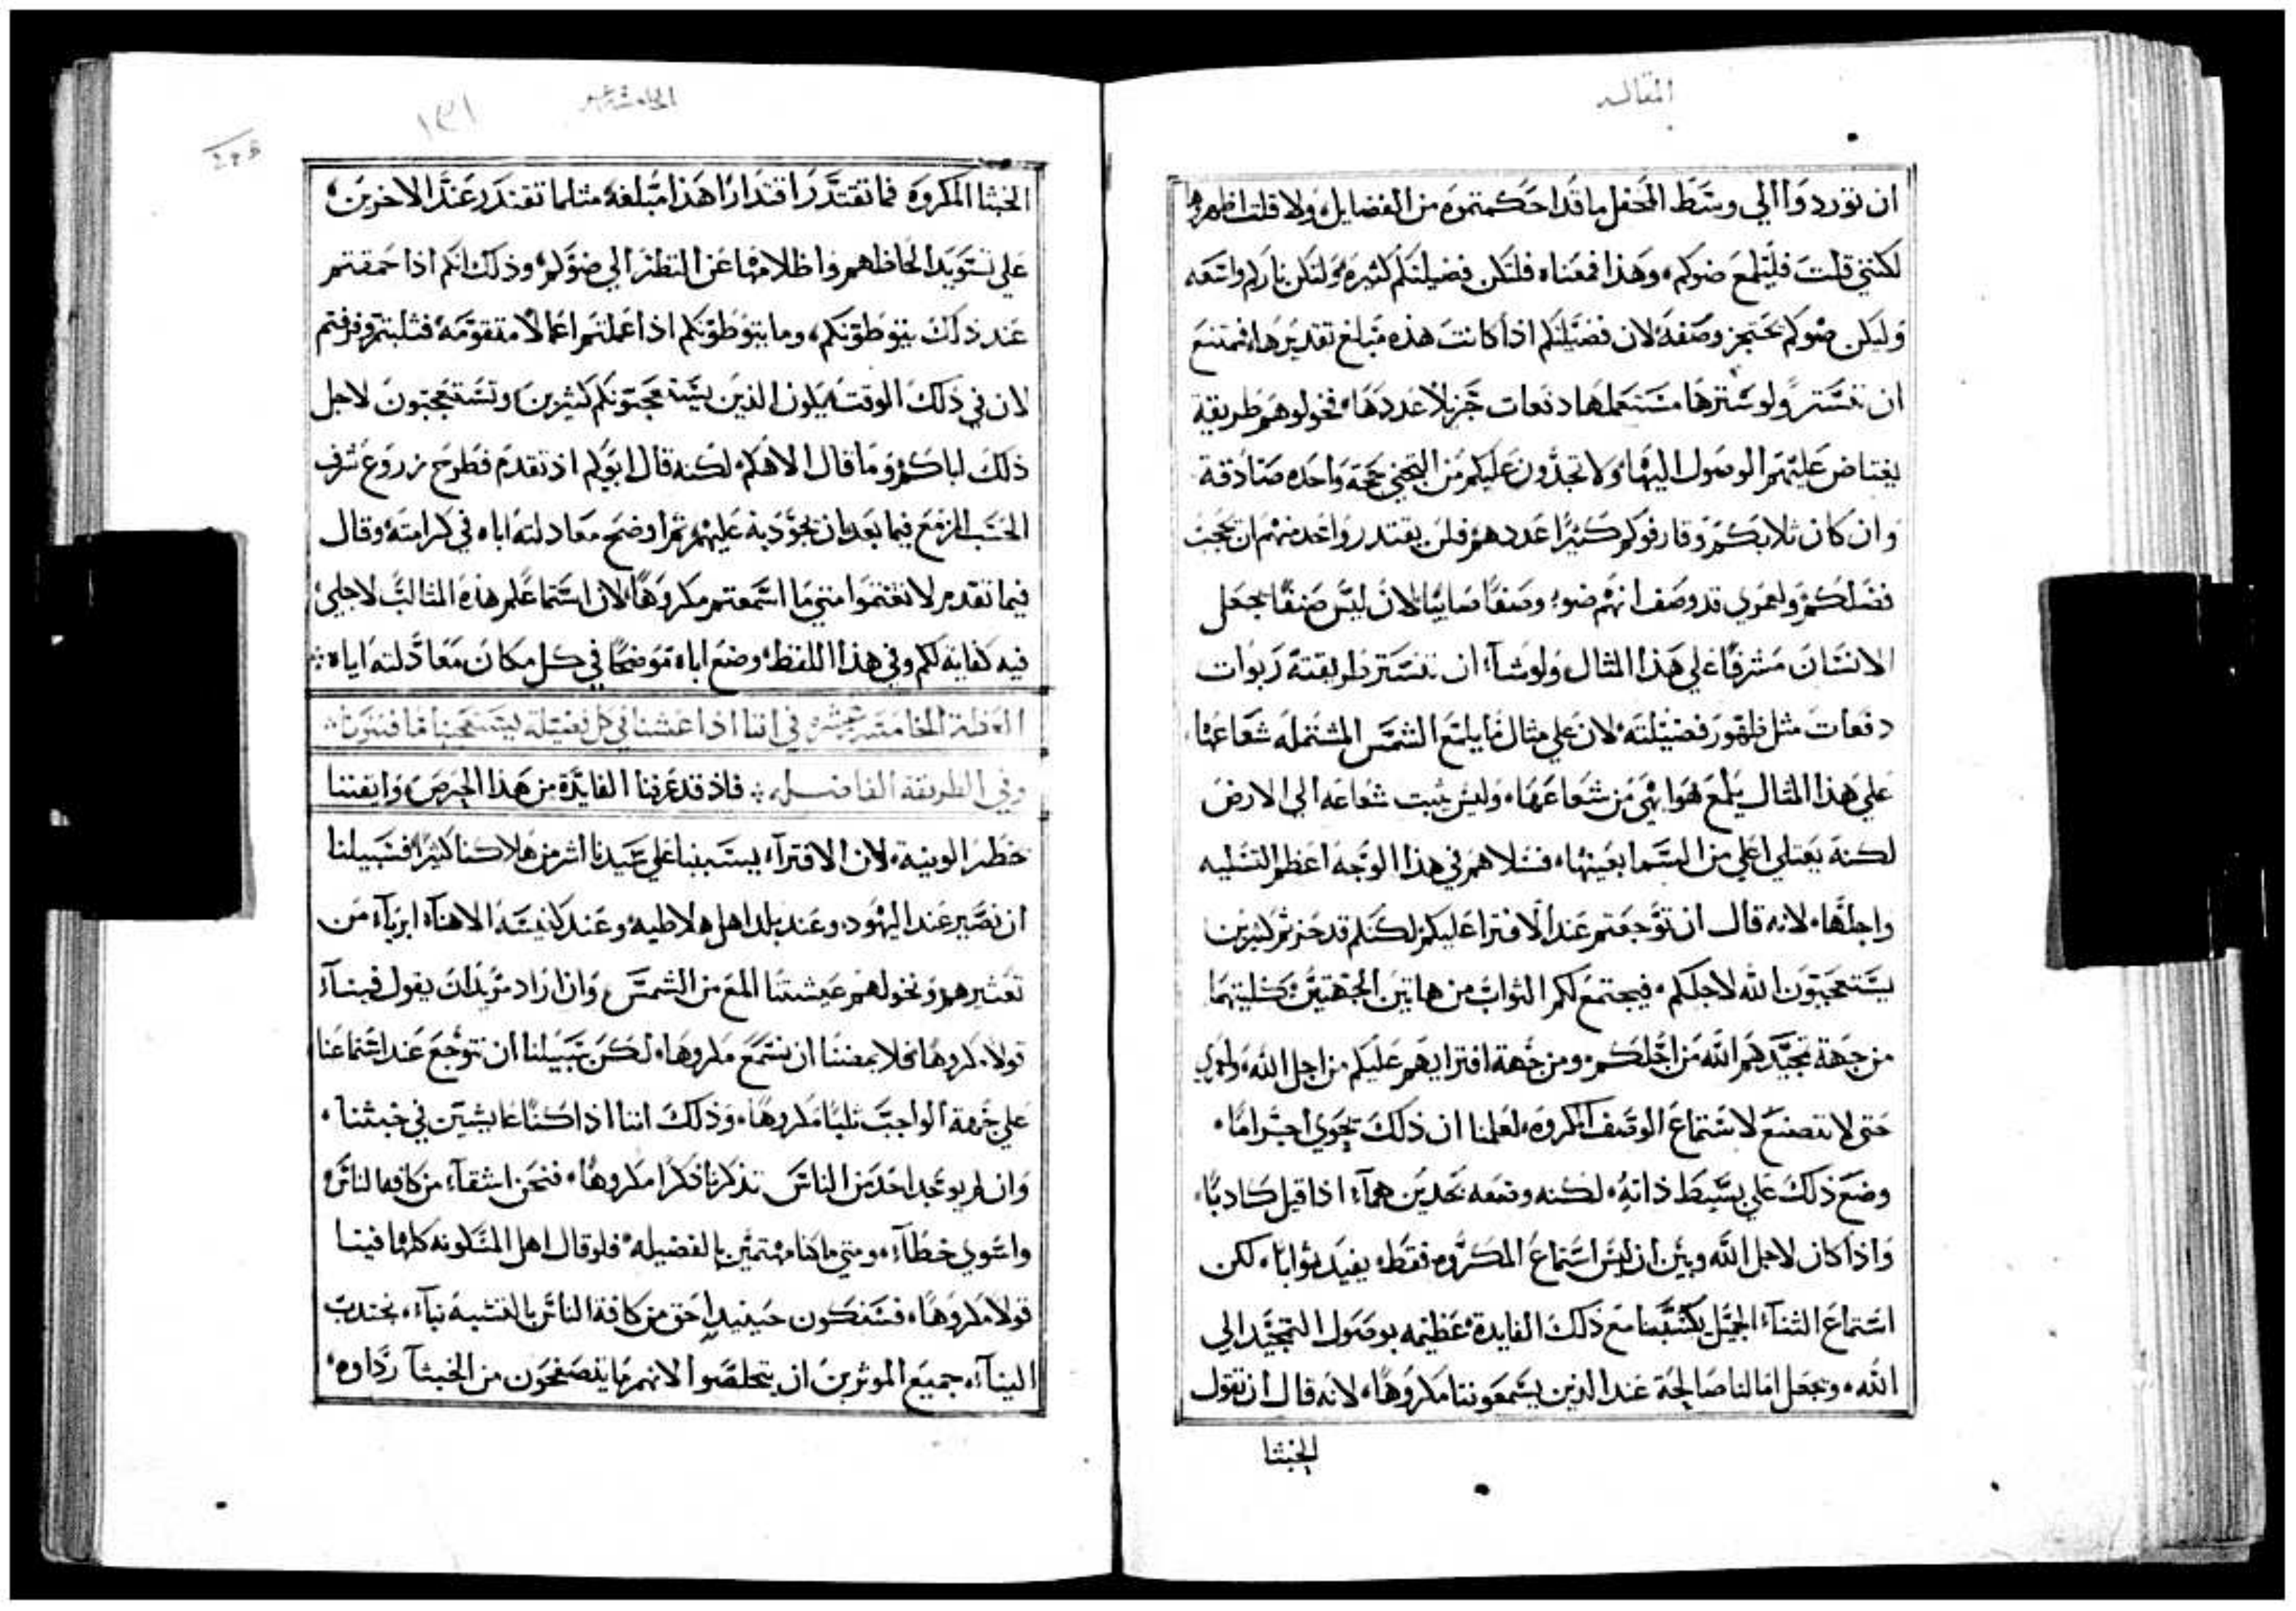 المقاله
ان توردوا الي وسط المحفل ما قد احكمتموه من الفضايل ولا قلت اظهروها
لكنني قلت فليلمع ضوكم وهذا فمعناه فلتكن فضيلتكم كثيره ولتكن ناركم واسعه
وليكن ضوكم يحتجز وصفه لان فضيلتكم اذا كانت هذه مبلغ تقديرها فممتنع
ان تستتر ولو سترها مستعملها دفعات جزيلا عددها فخولوهم طريقة
يعتاض عليهم الوصول اليها ولا تجدون عليكم من التجني حجة واحده صادقة
وان كان ثلابكم وقارفوكم كثيرا عددهم فلن يقتدر واحد منهم ان يحجب
فضلكم ولعمري قد وصف انهم ضو وصفا صايبا لان ليس صنفا يجعل
الانسان مشرقا علي هذا المثال ولو شاء ان تستتر طريقته ربوات
دفعات مثل ظهور فضيلته لان علي مثال ما يلمع الشمس المشتمله شعاعها
علي هذا المثال يلمع هو ابهي من شعاعها وليس يثبت شعاعه الي الارض
لكنه يعتلي اعلي من السما بعينها فسلاهم في هذا الوجه اعظم التسليه
واجلها لانه قال ان توجعتم عند الافترا عليكم لكنكم قد حزتم كثيرين
يستعجبون الله لاجلكم فيجتمع لكم الثواب من هاتين الجهتين كلتيهما
من جهة تمجيدهم الله من اجلكم ومن جهة افترايهم عليكم من اجل الله ولعمري
حتي لا نتصنع لاستماع الوصف المكروه لعلمنا ان ذلك يحوي اجراما
وضع ذلك علي بسيط ذاته لكنه وضعه بحدين هما اذا قيل كاذبا
واذا كان لاجل الله وبين ان ليس استماع المكروه فقط يفيد ثوابا لكن
استماع الثناء الجميل يكسبنا مع ذلك الفايدة عظيمه بوصول التمجيد الي
الله وجعل امالنا صالحة عند الذين يسمعوننا مكروها لانه قال ان تقول
الخبثا
الخامسه عشر
١٣١
الخبثا المكروه فما تقتدر اقتدارا هذا مبلغه مثلما تقتدر عند الاخرين
علي تسويد الحاظهم واظلامها عن النظر الي ضوكم وذلك انكم اذا حمقتم
عند ذلك يتوطونكم وما يتوطونكم اذا عملتم اعمالا متقومه فثلبتم وقرفتم
لان في ذلك الوقت يكون الذين يستعجبونكم كثيرين وتستعجبون لاجل
ذلك اباكم وما قال الاهكم لكنه قال ابوكم اذ تقدم فطرح زروع شرف
الحسب المزمع فيما بعد ان يجود به عليهم ثم اوضح معادلته اباه في كرامته وقال
فيما تقدم لا تغتموا متي ما استمعتم مكروها لان استماعكم هذه المثالب لاجلي
فيه كفايه لكم وفي هذا اللفظ وضع اباه موضحا في كل مكان معادلته اياه
العظة الخامسة عشره في اننا اذا عشنا في كل فضيلة يستعجبنا قافتونا
وفي الطريقة الفاضله فاذ قد عرفنا الفايدة من هذا الحرص وايقننا
خطر الونية لان الافتراء يستبينا علي عبيدنا اشر من هلاكنا كثيرا فسبيلنا
ان نصير عند اليهود وعند بلد اهل هلاطيه وعند كنيسة الاهنا ابرياء من
تعثيرهم ونخولهم عيشتنا المع من الشمس وان اراد مريد ان يقول فينا
قولا مكروها فلا يمضنا ان نستمع مكروها لكن سبيلنا ان نتوجع عند استماعنا
علي جهة الواجب ثلبا مكروها وذلك اننا اذا كنا عايشين في خبثنا
وان لم يوجد احد من الناس تذكرنا ذكرا مكروها فنحن اشقاء من كافه الناس
واسوي خطاء ومتي ما كنا مهتمين بالفضيله فلو قال اهل المسكونه كلها فينا
قولا مكروها فسنكون حينيذ احق من كافة الناس بالتشبه بنا نجتذب
الينا جميع الموثرين ان يتخلصوا لانهم ما يتصفحون من الخبثا رداوه